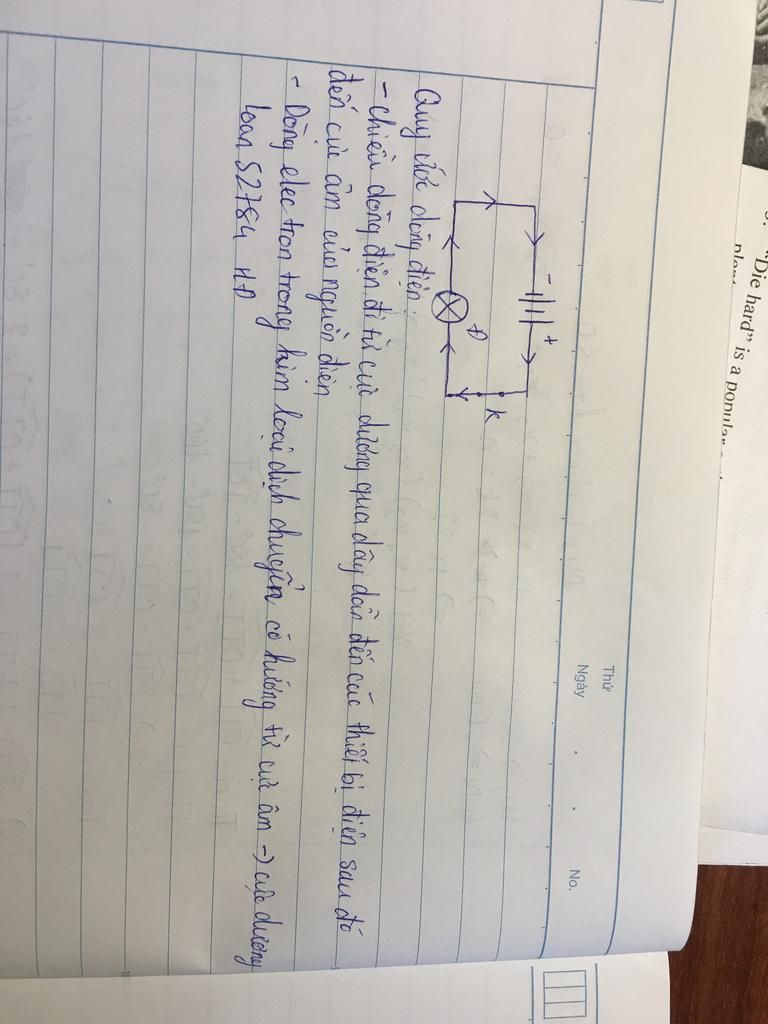 Thứ
Ngày
No.
- +
K
Đ
Quy ước dòng điện:
- chiều dòng điện đi từ cực dương qua dây dẫn đến các thiết bị điện sau đó
đến cực âm của nguồn điện
- Dòng electron trong kim loại dịch chuyển có hướng từ cực âm -) cực dương
loan 52784 HĐ
"Die hard" is a popular